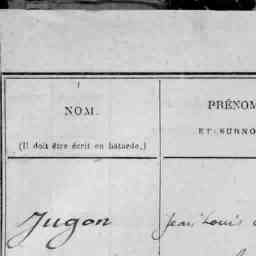 NOM.
(Il doit être écrit en bâtarde.)
PRÉNOM
ET SURNO
Jugon
Jean Louis